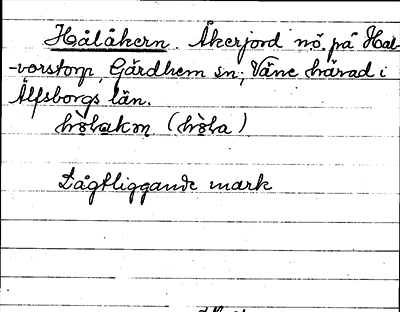 Hålåkern. Åkerjord nö. på Hal-
-vorstorp, Gärdhem sn; Väne härad i
Älfsborgs län.
(hòla)
Lågtliggande mark